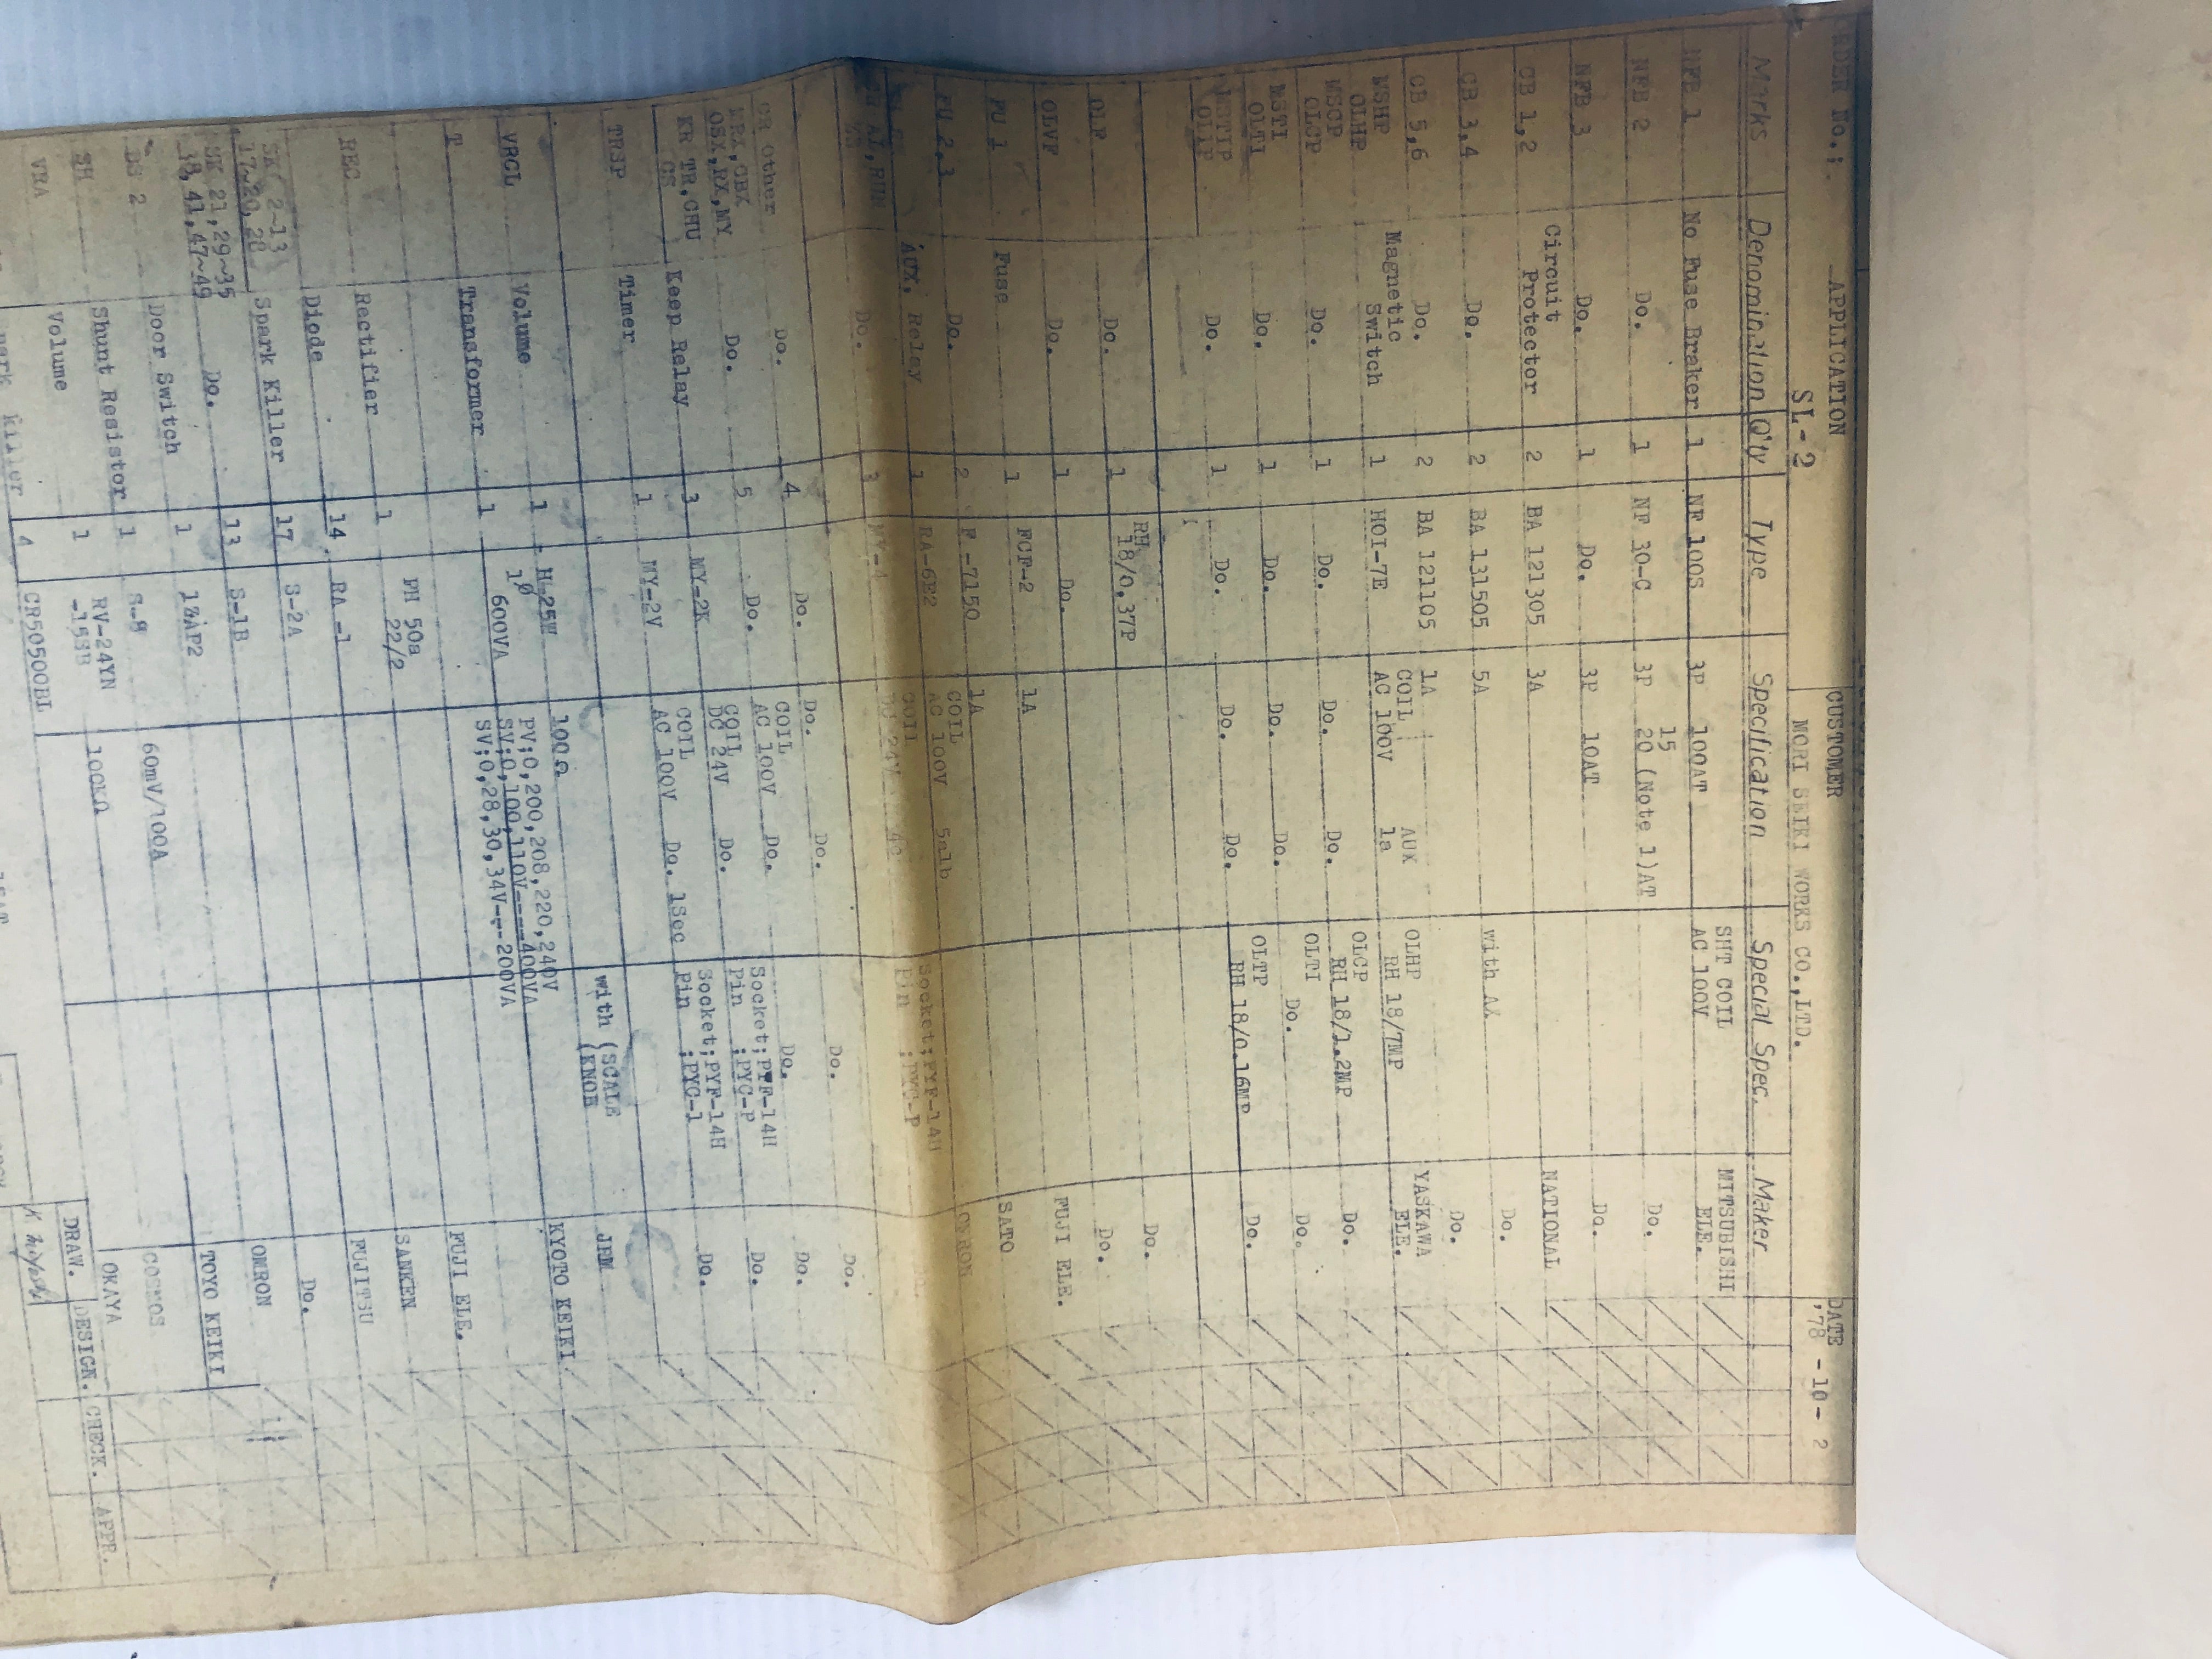 ORDER No.: APPLICATION CUSTOMER DATE
SL-2 MORI SEIKI WORKS CO.,LTD. '78 -10- 2
Marks Denomination Q'ty Type Specification Special Spec. Maker
NFB 1 No Fuse Braker 1 NF 100S 3P 100AT SHT COIL AC 100V MITSUBISHI ELE.
NFB 2 Do. 1 NF 30-C 3P 15 20 (Note 1)AT Do.
NFB 3 Do. 1 Do. 3P 10AT Do.
CB 1,2 Circuit Protector 2 BA 121305 3A NATIONAL
CB 3,4 Do. 2 BA 131505 5A with AX Do.
CB 5,6 Do. 2 BA 121105 1A Do.
MSHP OLHP Magnetic Switch 1 HOI-7E COIL AC 100V AUX 1a OLHP RH 18/7MP YASKAWA ELE.
MSCP OLCP Do. 1 Do. Do. Do. OLCP RH 18/1.2MP Do.
MSTI OLTI Do. 1 Do. Do. Do. OLTI Do. Do.
OLTP Do. 1 Do. Do. Do. OLTP RH 18/0.16MP Do.
OLF Do. 1 RH 18/0.37P Do.
OLVF Do. 1 Do. Do.
FU 1 Fuse 1 FCF-2 1A FUJI ELE.
FU 2,3 Do. 2 F-7150 1A SATO
AUX. Relay 1 RA-6E2 COIL AC 100V 5a1b OMRON
Do. 3 MY-4 COIL DC 24V Socket;PYF-14H Pin ;PYC-P
CR Other Do. 4 Do. Do. Do. Do. Do.
KRX,CBX OSX,RX,MY Do. 5 Do. COIL AC 100V Do. Do. Do.
KR TR,CHU CS Keep Relay 3 MY-2K COIL DC 24V Do. Socket;PYF-14H Pin ;PYC-P Do.
TRSP Timer 1 MY-2V COIL AC 100V Do. 1Sec Socket;PYF-14H Pin ;PYC-1 Do.
VRCL Volume 1 H-25W 100Ω with (SCALE (KNOB JRM
T Transformer 1 1ø 600VA PV;0,200,208,220,240V SV;0,100,110V----400VA SV;0,28,30,34V---200VA KYOTO KEIKI
REC Rectifier 1 PH 50a 22/2 FUJI ELE.
Diode 14 RA -1 SANKEN
SK 2-13 17~20,28 Spark Killer 17 S-2A FUJITSU
SK 21,29~35 38,41,47~49 Do. 13 S-1B Do.
DS 2 Door Switch 1 1%AP2 OMRON
SH Shunt Resistor 1 S-8 60mV/100A TOYO KEIKI
VRA Volume 1 RV-24YN -15SB 100KΩ COSMOS
Killer 4 CR50500BL OKAYA
DRAW. DESIGN. CHECK. APPR.